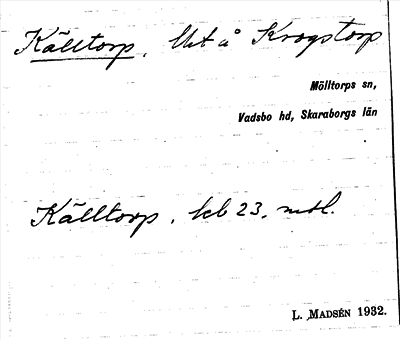 Källtorp, Utt å Krogstorp
Mölltorps sn,
Vadsbo hd, Skaraborgs län
Källtorp, hcb 23, mtl.
L. MADSÉN 1932.